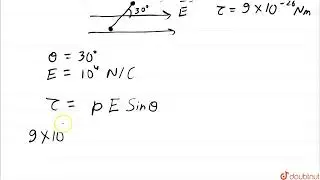 30° E τ = 9 × 10⁻²⁶ Nm
θ = 30°
E = 10⁴ N/C
τ = p E Sinθ
9 × 10
doubtnut